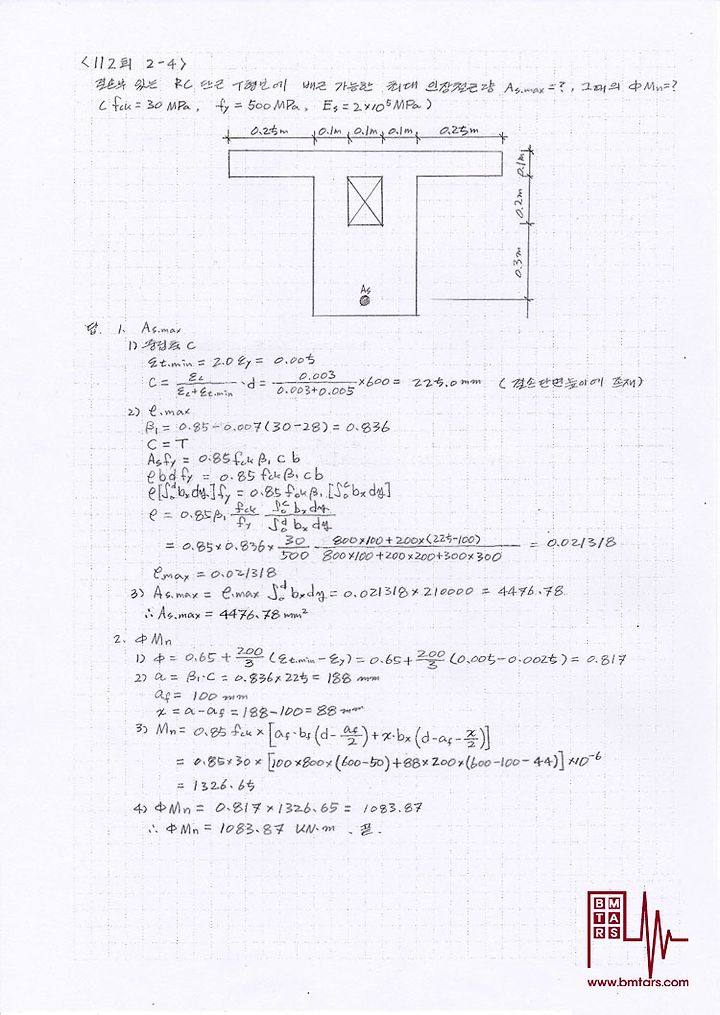 <112회 2-4>
결손부 있는 RC 단근 T형보에 배근 가능한 최대 인장철근량 As.max=?, 그때의 ΦMn=?
( fck = 30 MPa, fy = 500 MPa, Es = 2×10⁵ MPa )
0.25m 0.1m 0.1m 0.1m 0.25m
0.1m
0.2m
0.3m
As
답. 1. As.max
1) 중립축 C
εt.min = 2.0 εy = 0.005
C = εc/(εc+εt.min) · d = 0.003/(0.003+0.005) × 600 = 225.0 mm ( 결손단면높이에 존재)
2) ρ.max
β₁ = 0.85 - 0.007(30-28) = 0.836
C = T
Asfy = 0.85 fck β₁ c b
ρbdfy = 0.85 fck β₁ c b
ρ[∫₀ᵈ bx dy]fy = 0.85 fck β₁ [∫₀ᶜ bx dy]
ρ = 0.85β₁ fck/fy ∫₀ᶜ bx dy / ∫₀ᵈ bx dy
= 0.85×0.836× 30/500 (800×100+200×(225-100))/(800×100+200×200+300×300) = 0.021318
ρ.max = 0.021318
3) As.max = ρ.max ∫₀ᵈ bx dy = 0.021318 × 210000 = 4476.78
∴ As.max = 4476.78 mm²
2. ΦMn
1) Φ = 0.65 + 200/3 (εt.min - εy) = 0.65 + 200/3 (0.005-0.0025) = 0.817
2) a = β₁·C = 0.836×225 = 188 mm
af = 100 mm
x = a - af = 188-100 = 88 mm
3) Mn = 0.85 fck × [af·bf (d - af/2) + x·bx (d - af - x/2)]
= 0.85×30 × [100×800×(600-50) + 88×200×(600-100-44)] ×10⁻⁶
= 1326.65
4) ΦMn = 0.817 × 1326.65 = 1083.87
∴ ΦMn = 1083.87 KN·m . 끝.
BMTARS
www.bmtars.com